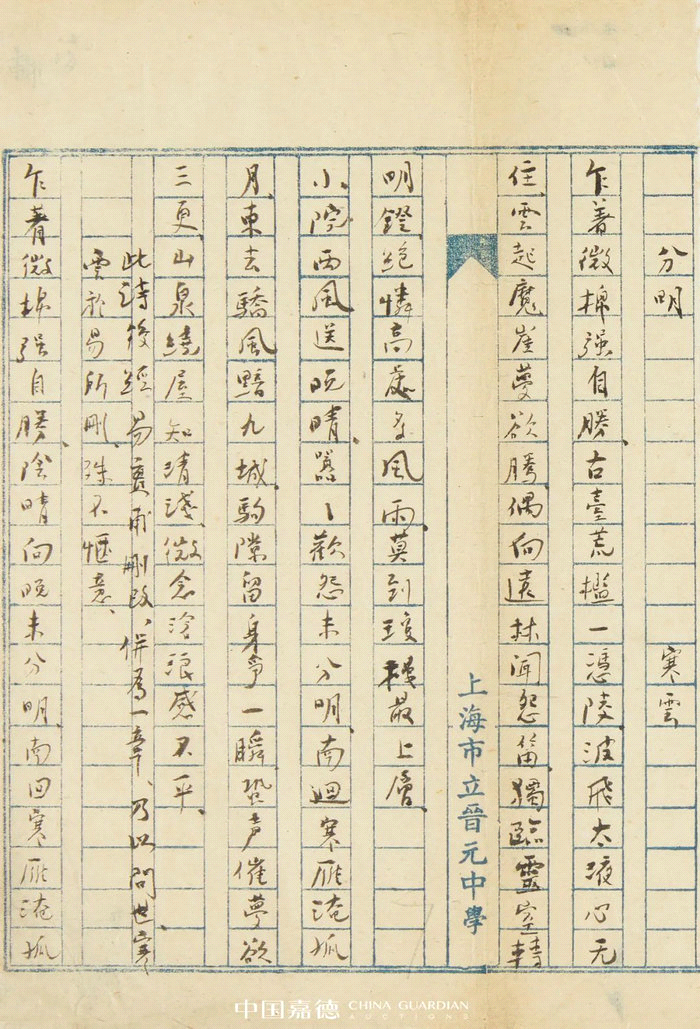 分明 寒雲
乍着微棉强自勝、古臺荒檻一憑陵、波飛太液心无
住、雲起魔崖夢欲騰、偶向遠林聞怨笛、獨臨靈室轉
上海市立晉元中學
明鐙絶憐高處多風雨、莫到瓊樓最上層、
小院西風送晚晴、嚣々歡怨未分明、南迴寒雁淹孤
月、東去驕風黯九城、駒隙留身爭一瞬、蛩声催夢欲
三更、山泉繞屋知清淺、微念滄浪感不平、
此詩後經易實甫刪改、併為一章、乃以問世、寒
雲於易所刪、殊不愜意、
乍着微棉强自勝、陰晴向晚未分明、南回寒雁淹孤
中国嘉德 CHINA GUARDIAN
AUCTIONS